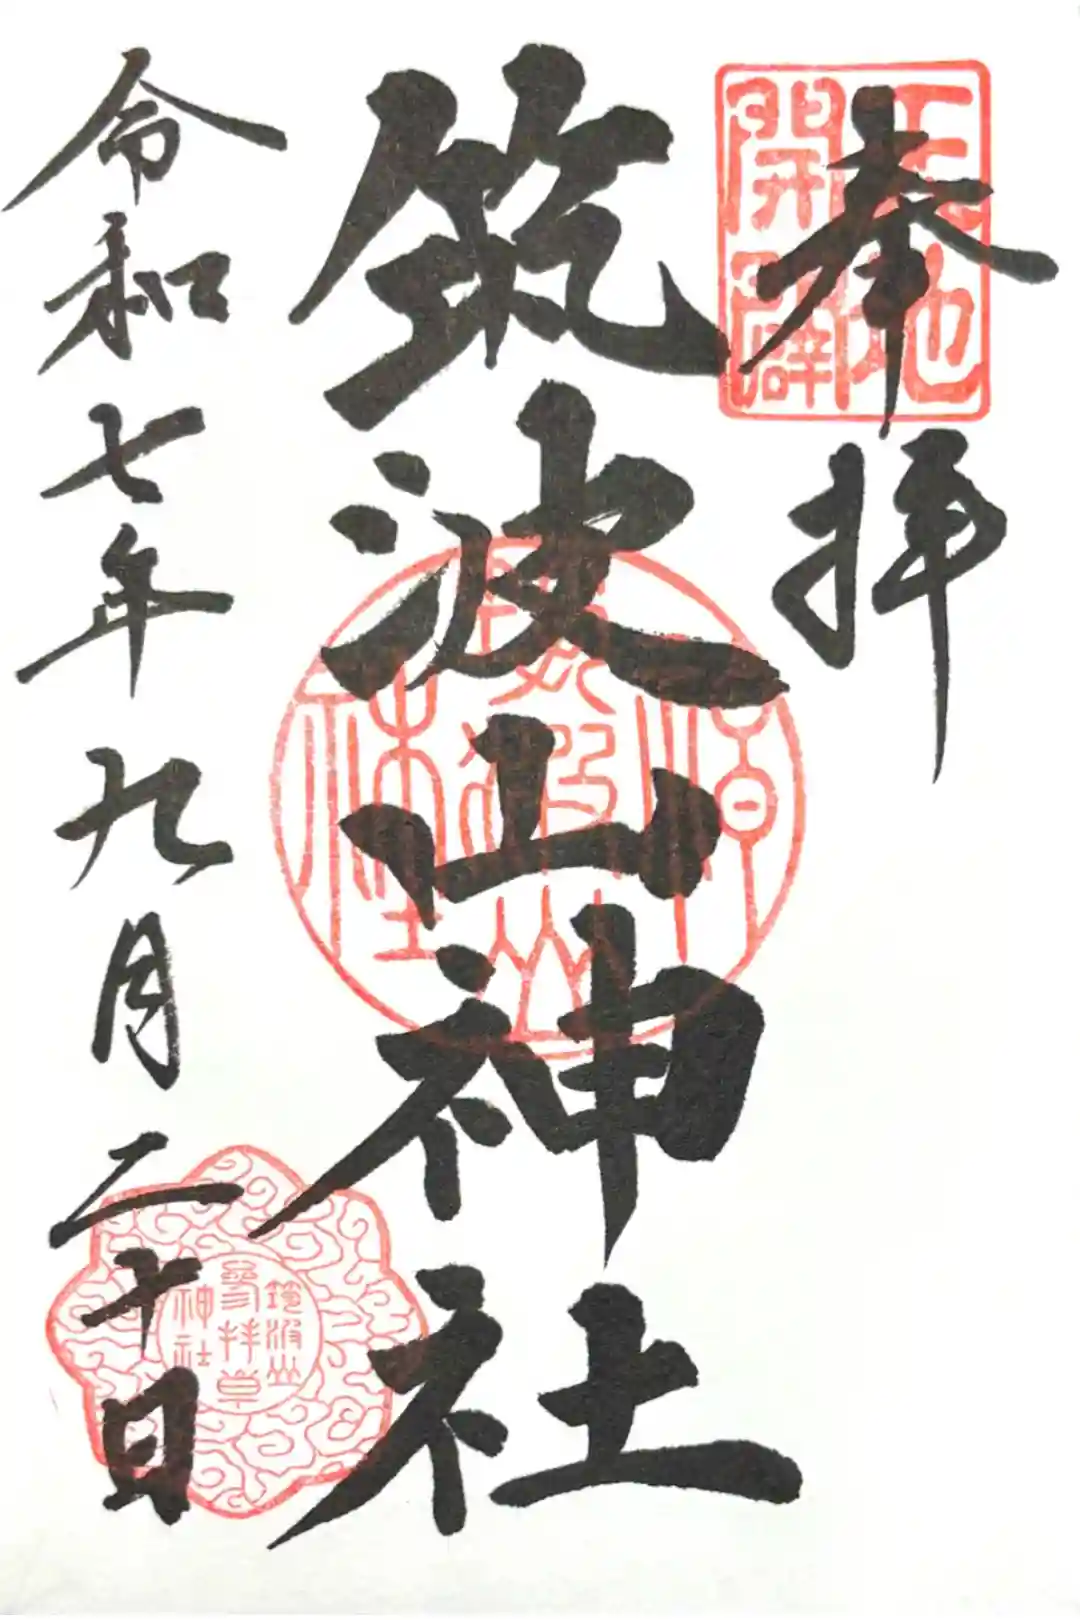 奉拝
天地
開闢
筑波山神社
令和七年九月二十日
筑波山
参拝章
神社